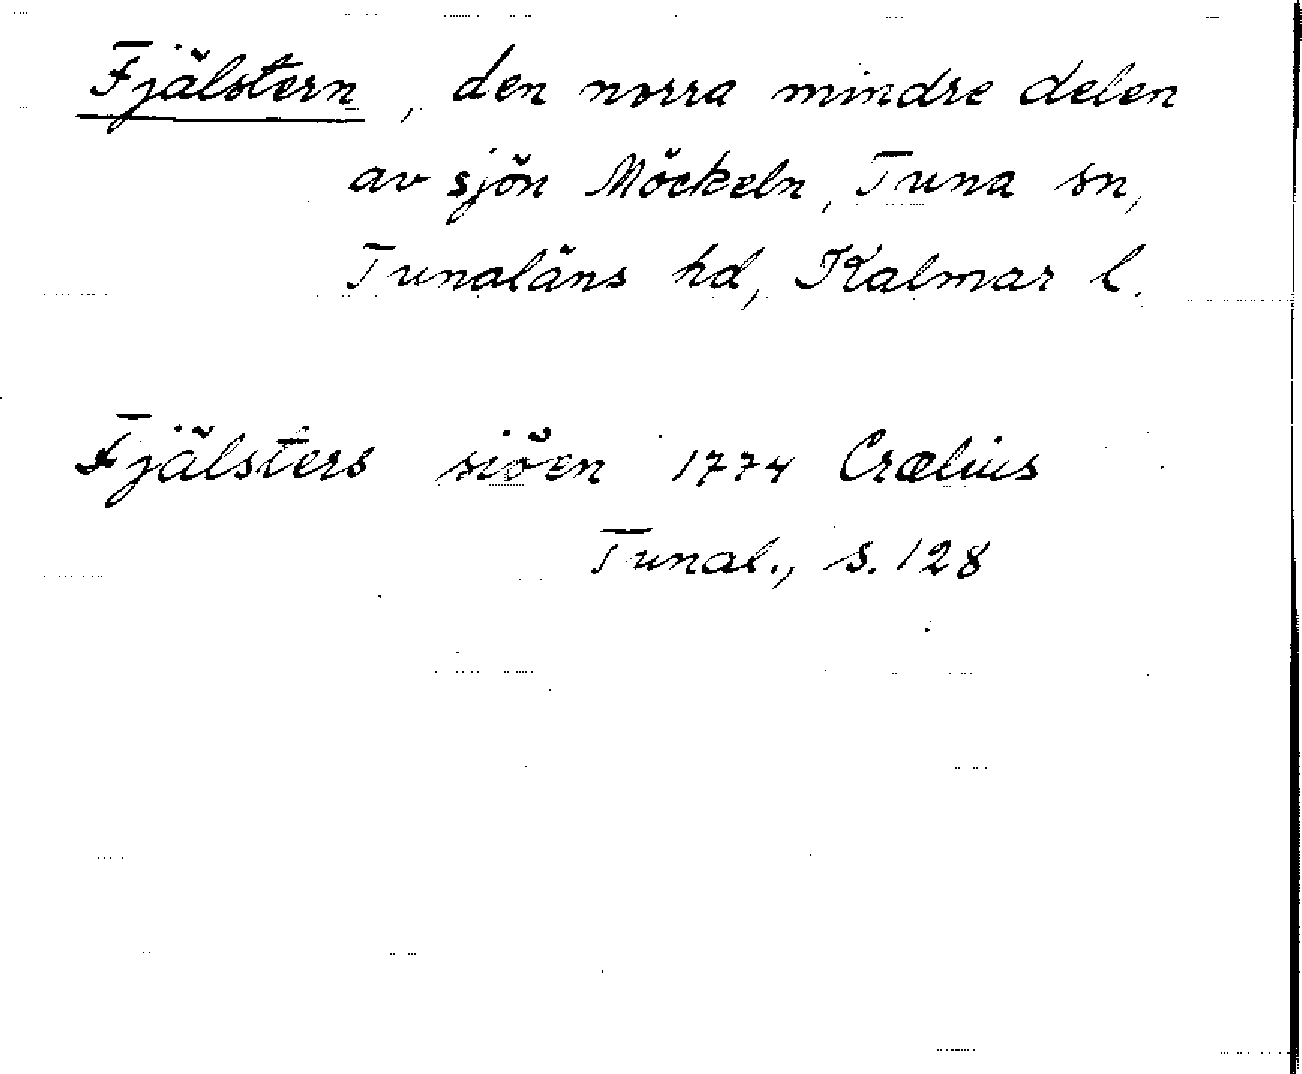 Fjälstern, den norra mindre delen
av sjön Möckeln, Tuna sn,
Tunaläns hd, Kalmar l.
Fjälsters siöen 1774 Crælius
Tunal., s. 128